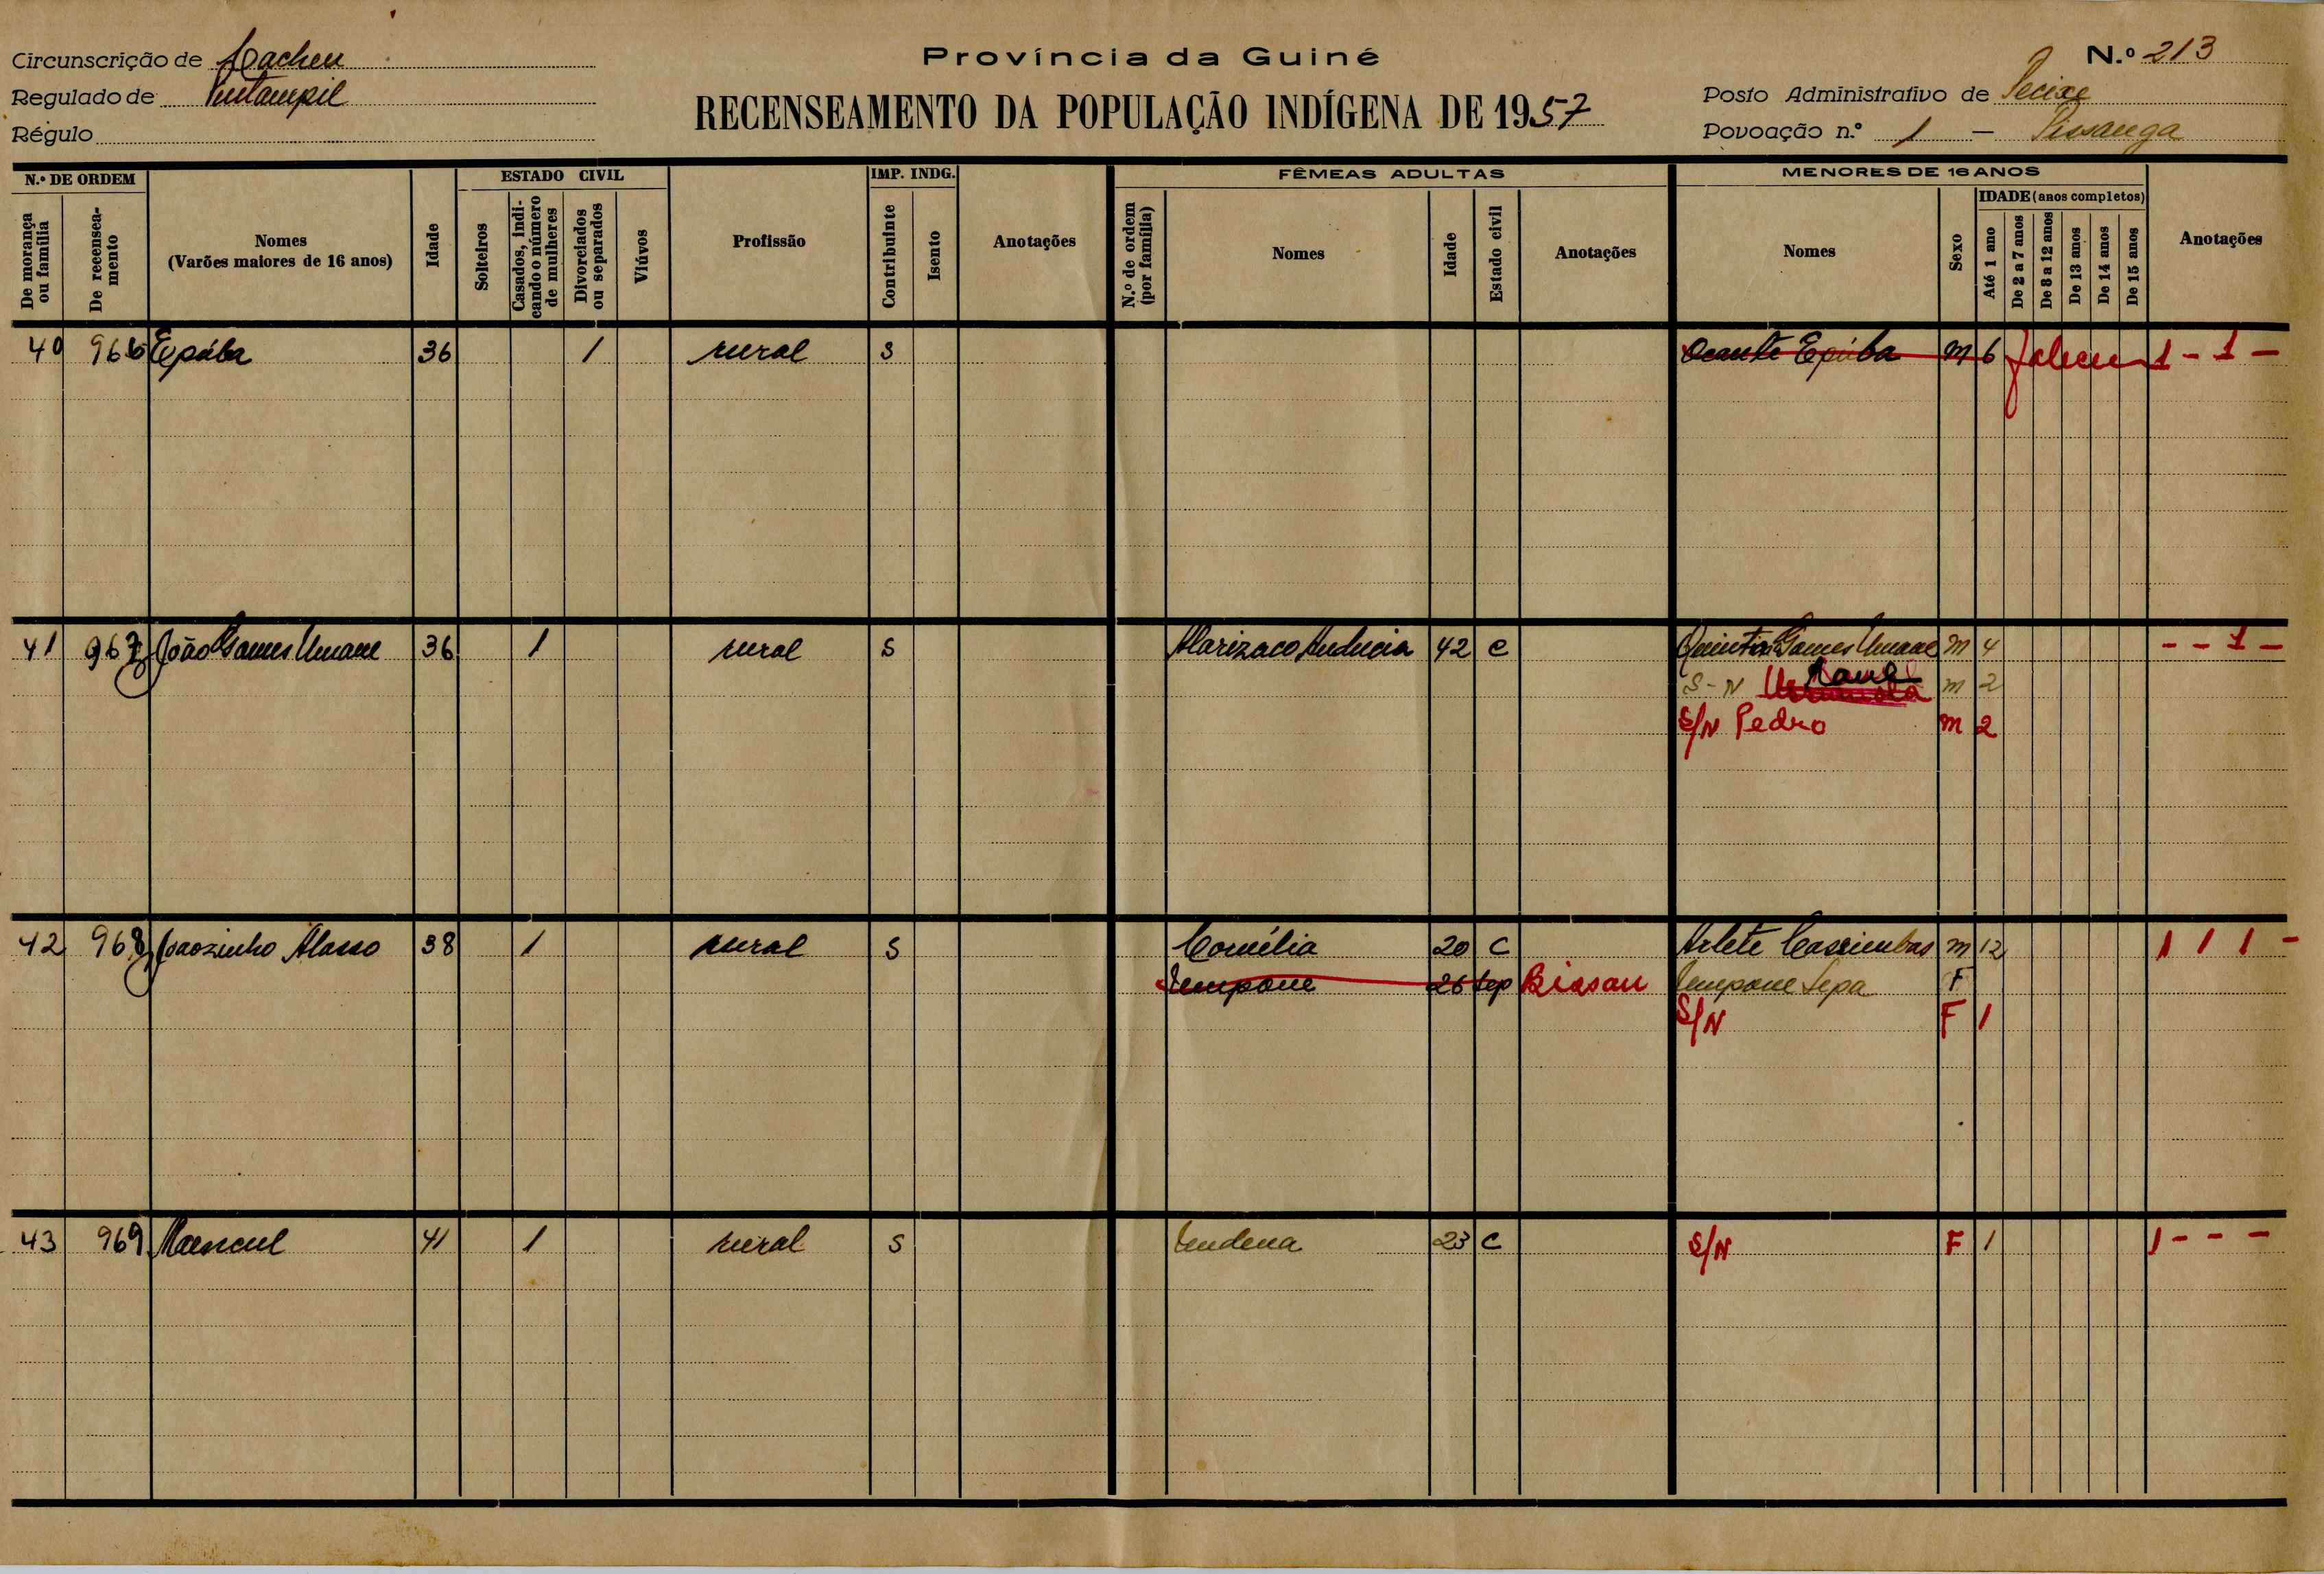 Circunscrição de Cacheu
Província da Guiné
N.º 213
Regulado de
RECENSEAMENTO DA POPULAÇÃO INDÍGENA DE 1957
Posto Administrativo de Pecixe
Régulo
Povoação n.º 1 —
N.º DE ORDEM
De morança ou família
De recenseamento
Nomes
(Varões maiores de 16 anos)
Idade
ESTADO CIVIL
Solteiros
Casados, indicando o número de mulheres
Divorciados ou separados
Viúvos
Profissão
IMP. INDG.
Contribuinte
Isento
Anotações
FÊMEAS ADULTAS
N.º de ordem (por família)
Nomes
Idade
Estado civil
Anotações
MENORES DE 16 ANOS
Nomes
Sexo
IDADE (anos completos)
Até 1 ano
De 2 a 7 anos
De 8 a 12 anos
De 13 anos
De 14 anos
De 15 anos
Anotações
40 966 36 1 rural S Ocante m 6 1 - 1 -
41 967 João Gomes 36 1 rural S 42 C Gomes m 4 - - 1 -
S-N m 2
S/N Pedro m 2
42 968 Joaozinho 38 1 rural S Cornélia 20 C Arlete m 12 1 1 1 -
26 Sep Bissau F
S/N F 1
43 969 41 1 rural S 23 C S/N F 1 1 - - -